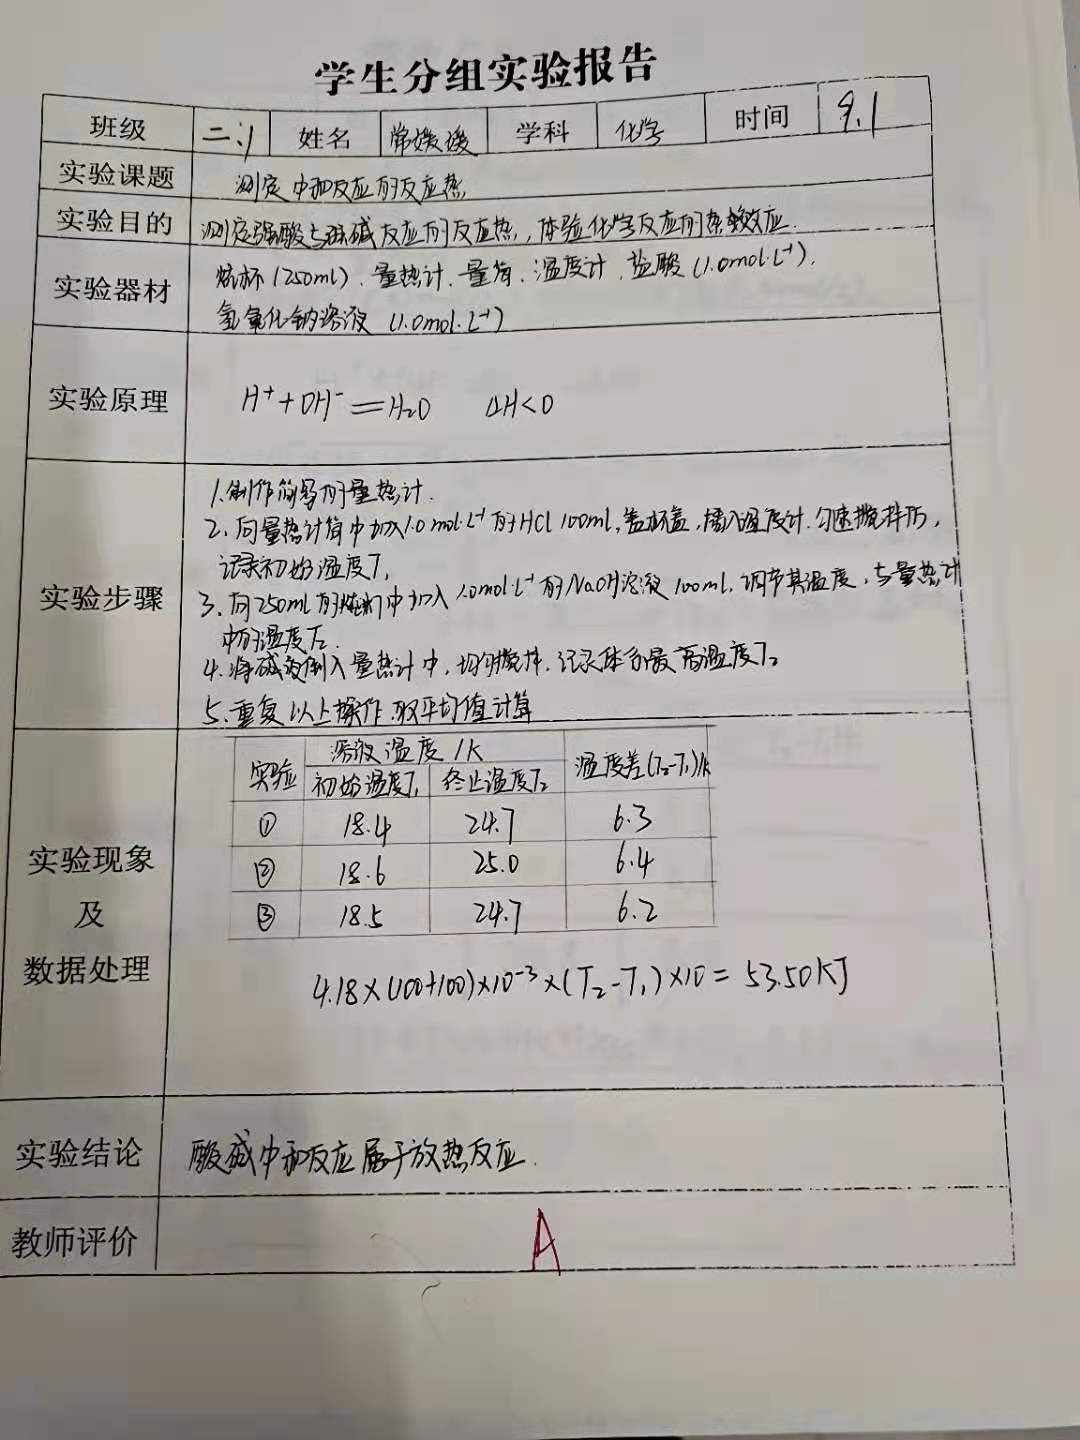 学生分组实验报告
班级 二、1 姓名 常媛媛 学科 化学 时间 9.1
实验课题 测定中和反应的反应热
实验目的 测定强酸与强碱反应的反应热，体验化学反应的热效应.
实验器材 烧杯(250ml)、量热计、量筒、温度计、盐酸(1.0mol·L⁻¹)、
氢氧化钠溶液 (1.0mol·L⁻¹)
实验原理 H⁺+OH⁻═H₂O ΔH<0
实验步骤
1.制作简易的量热计.
2、向量热计筒中加入1.0mol·L⁻¹的HCl 100ml,盖杯盖,插入温度计.匀速搅拌后,
记录初始温度T₁
3、向250ml的烧杯中加入1.0mol·L⁻¹的NaOH溶液100ml.调节其温度,与量热计
中的温度T₂
4.将碱液倒入量热计中,均匀搅拌.记录体系最高温度T₂
5、重复以上操作.取平均值计算
实验现象
及
数据处理
实验 溶液温度/K 温度差(T₂-T₁)/K
初始温度T₁ 终止温度T₂
① 18.4 24.7 6.3
② 18.6 25.0 6.4
③ 18.5 24.7 6.2
4.18×(100+100)×10⁻³×(T₂-T₁)×10=53.50KJ
实验结论 酸碱中和反应属于放热反应.
教师评价 A